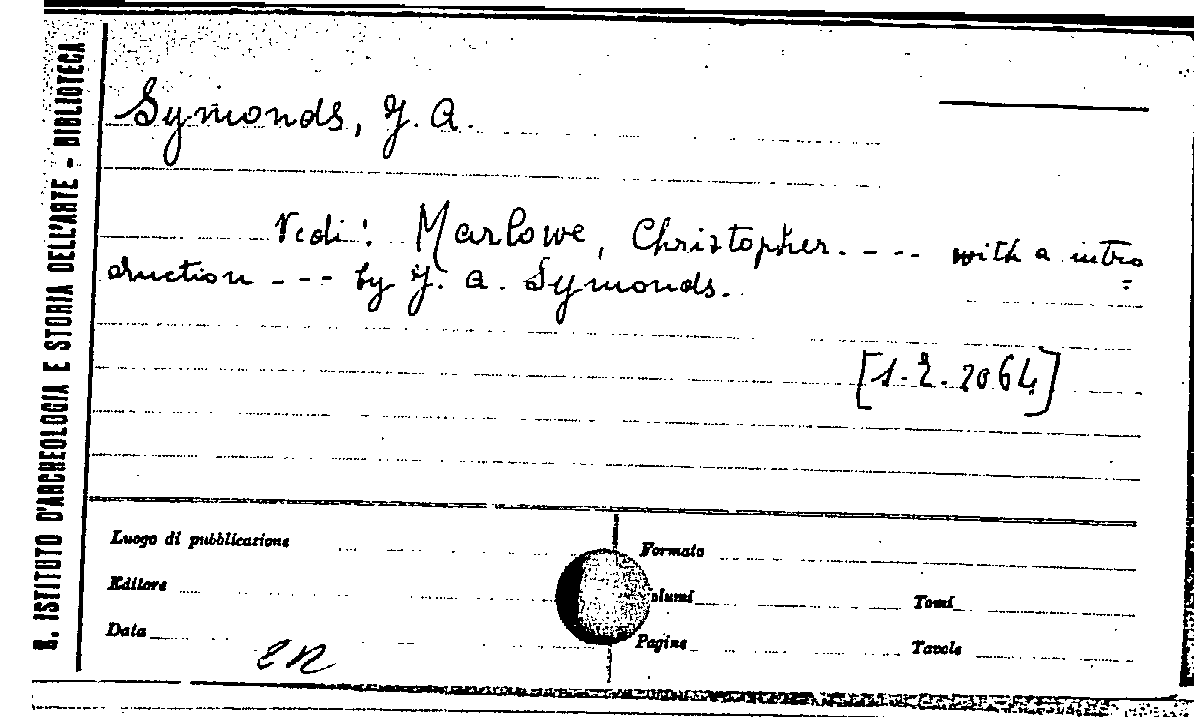 R. ISTITUTO D'ARCHEOLOGIA E STORIA DELL'ARTE - BIBLIOTECA
Symonds, J. A.
Vedi: Marlowe, Christopher. - - - - with a intro
duction - - - by J. A. Symonds.
[1.2.2064]
Luogo di pubblicazione
Formato
Editore
olumi
Tomi
Data
Pagine
Tavole